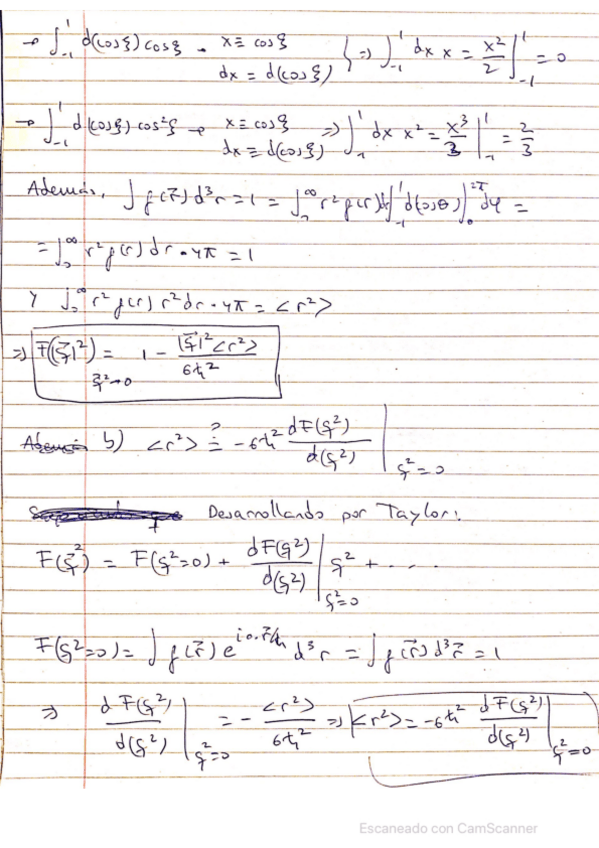 → ∫_{-1}^{1} d(cosξ) cosξ → x ≡ cosξ
dx = d(cosξ) } ⇒ ∫_{-1}^{1} dx x = x²/2 |_{-1}^{1} = 0
→ ∫_{-1}^{1} d(cosξ) cos²ξ → x ≡ cosξ
dx ≡ d(cosξ) ⇒ ∫_{-1}^{1} dx x² = x³/3 |_{-1}^{1} = 2/3
Además, ∫ ρ(r⃗) d³r = 1 = ∫_0^∞ r² ρ(r) dr ∫_{-1}^{1} d(cosθ) ∫_0^{2π} dφ =
= ∫_0^∞ r² ρ(r) dr · 4π = 1
Y ∫_0^∞ r² ρ(r) r² dr · 4π = <r²>
⇒ F(|q⃗|²) = 1 - |q⃗|²<r²>/6ħ²
q⃗²→0
b) <r²> ≟ -6ħ² dF(q²)/d(q²) |_{q²=0}
Desarrollando por Taylor:
F(q⃗²) = F(q²=0) + dF(q²)/d(q²) |_{q²=0} q² + ....
F(q²=0) = ∫ ρ(r⃗) e^{i0·r⃗/ħ} d³r = ∫ ρ(r⃗) d³r⃗ = 1
⇒ dF(q²)/d(q²) |_{q²=0} = - <r²>/6ħ² ⇒ <r²> = -6ħ² dF(q²)/d(q²) |_{q²=0}
Escaneado con CamScanner